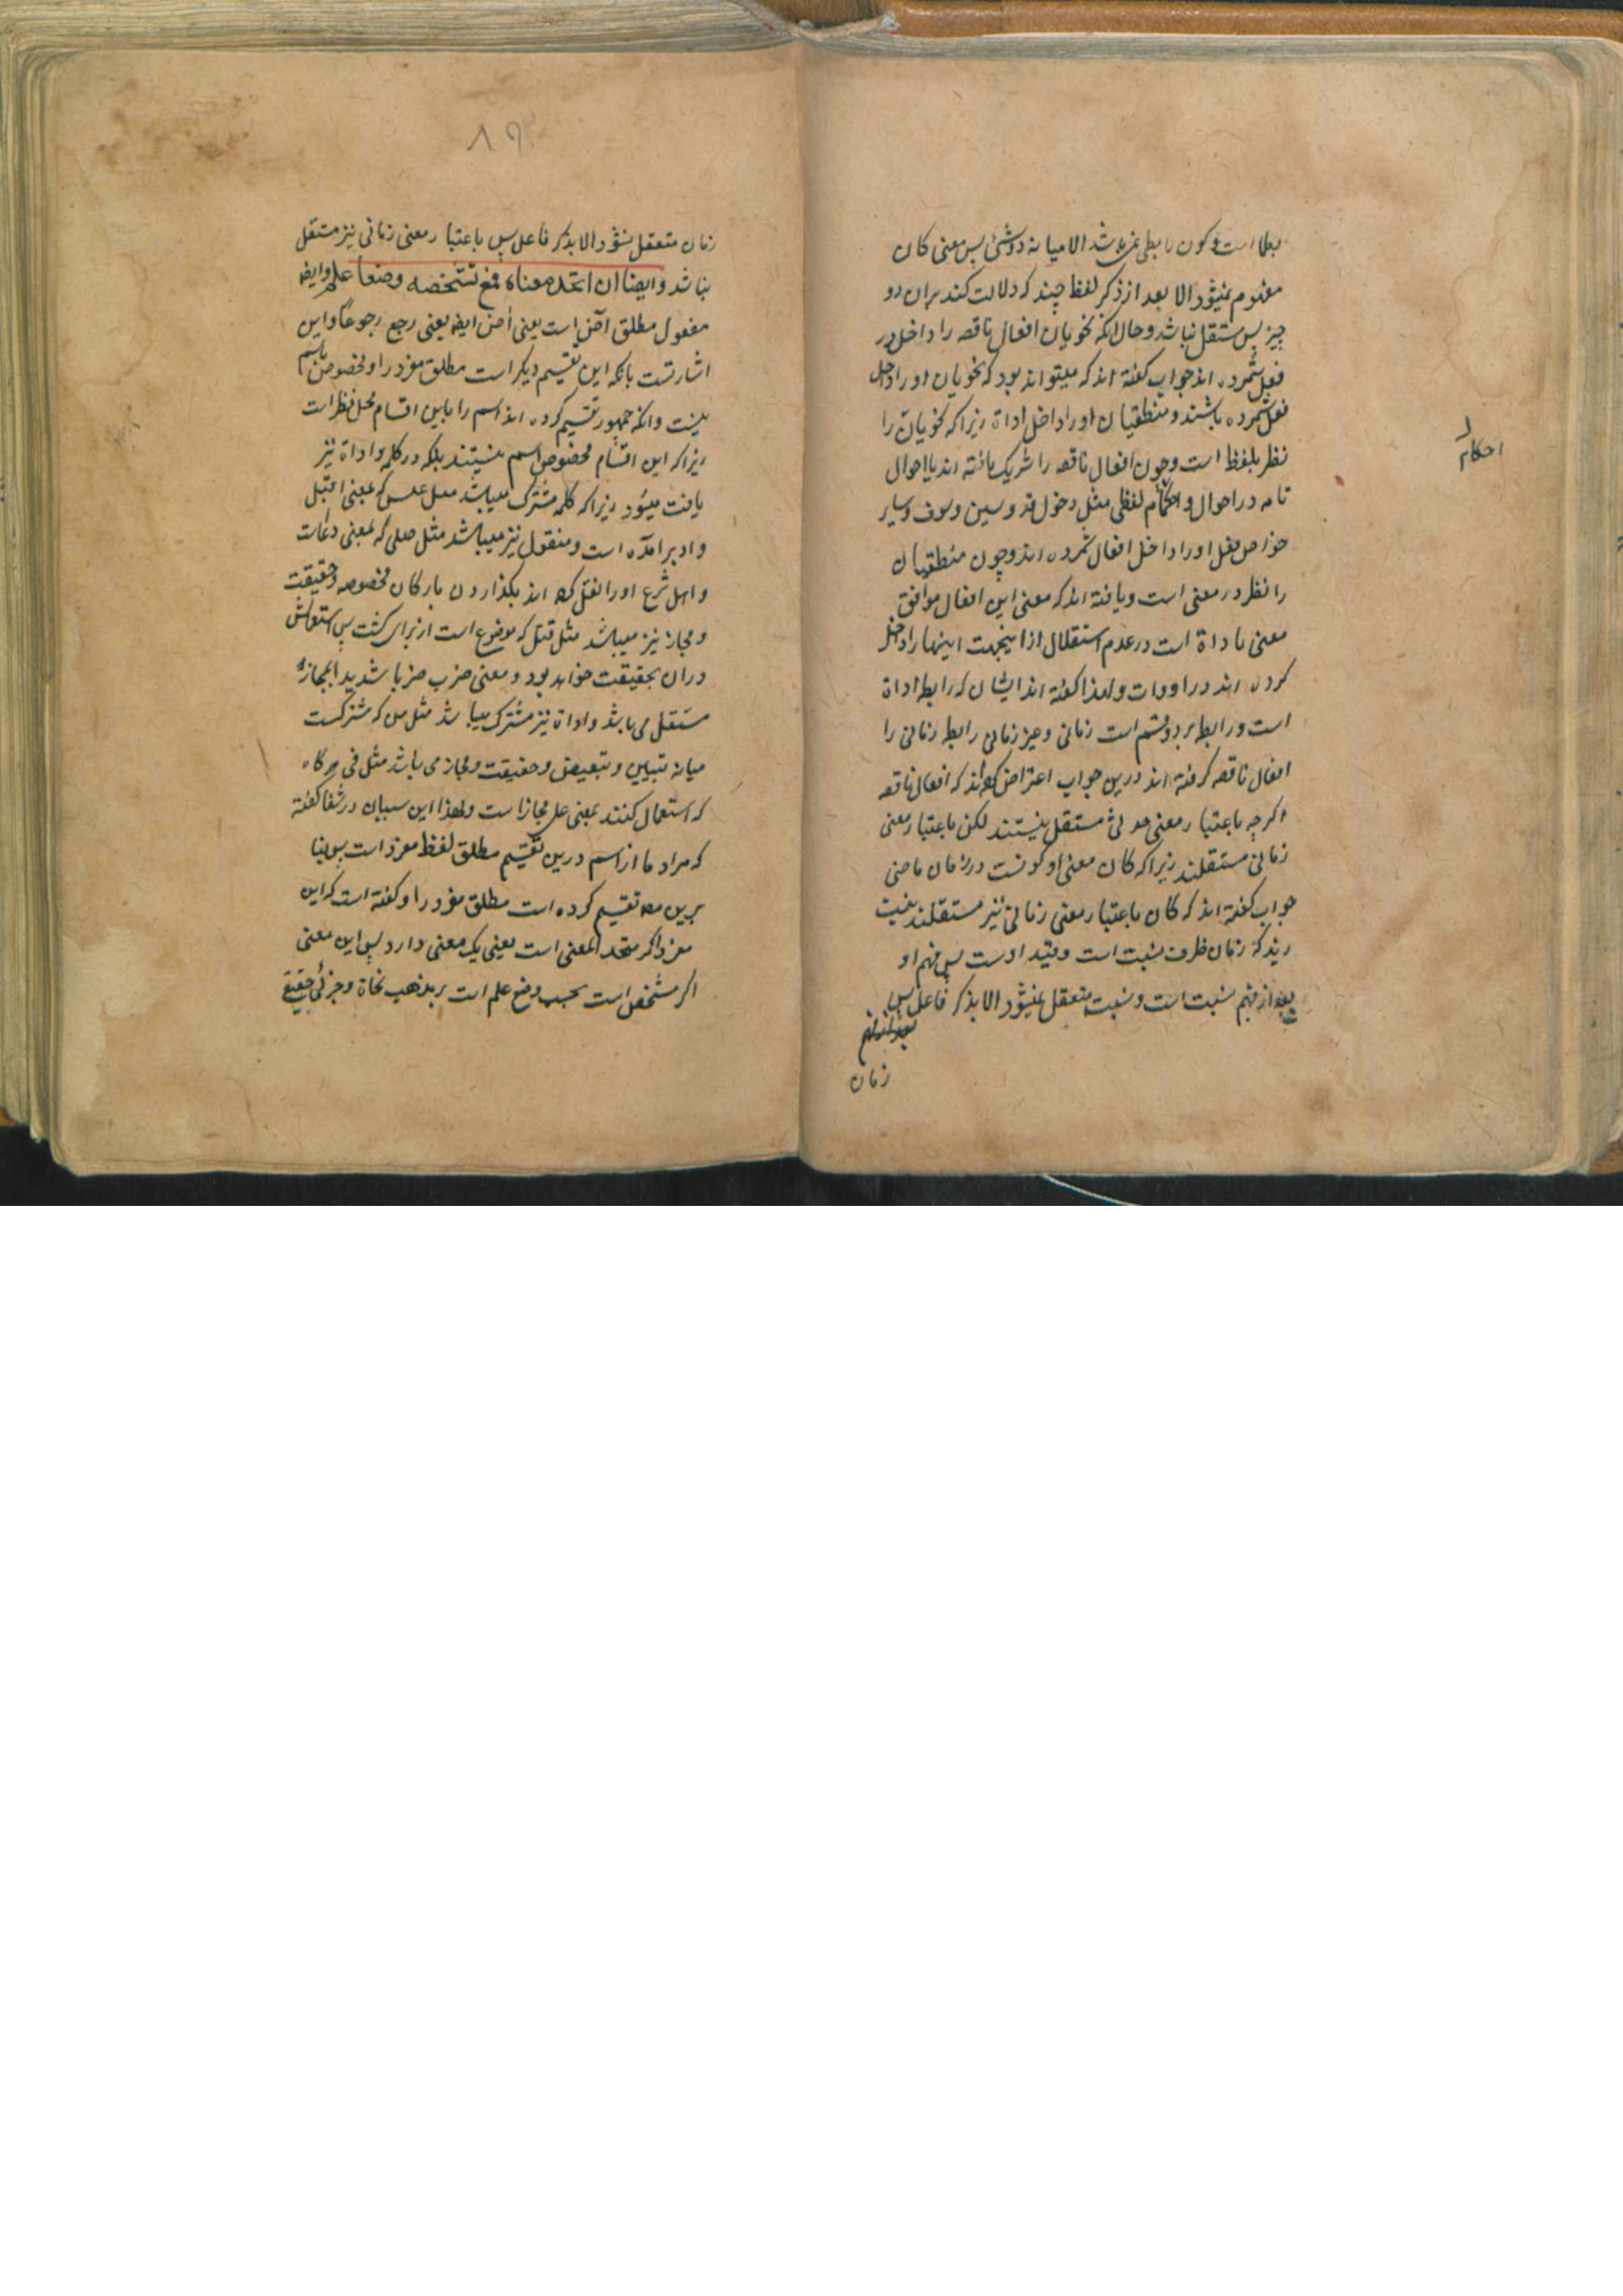 ربطی است و کون رابطی نمیباشد الا میانه دو شئ پس معنی کان
مفهوم نمیشود الا بعد از ذکر لفظ چند که دلالت کند بران دو
چیز پس مستقل نباشد و حال انکه نحویان افعال ناقصه را داخل در
فعل شمرده اند جواب گفته اند که میتواند بود که نحویان او را داخل
فعل شمرده باشند و منطقیان او را داخل اداة زیرا که نحویان را
نظر بلفظ است و چون افعال ناقصه را شریک یافته اند با احوال
تامه در احوال و احکام لفظی مثل دخول قد و سین و سوف و سایر
خواص فعل او را داخل افعال شمرده اند و چون منطقیان
را نظر در معنی است و یافته اند که معنی این افعال موافق
معنی اداة است در عدم استقلال از اینجهت اینها را داخل
کرده اند در اودات و لهذا گفته اند ایشان که رابطه اداة
است و رابطه بر دو قسم است زمانی و غیر زمانی رابطه زمانی را
افعال ناقصه گرفته اند درین جواب اعتراض کرده اند که افعال ناقصه
اگر چه باعتبار معنی حدثی مستقل نیستند لکن باعتبار معنی
زمانی مستقلند زیرا که کان معنی او کونست در زمان ماضی
جواب گفته اند که کان باعتبار معنی زمانی نیز مستقلند نیست
زیرکه زمان ظرف نسبت است و قید اوست پس فهم او
بعد از فهم نسبت است و نسبت متعقل نمیشود الا بذکر فاعل پس
زمان
احکام
۸۹
زمان متعقل نشود الا بذکر فاعل پس باعتبار معنی زمانی نیز مستقل
نباشد و ایضا ان اتحد معناه فمع تشخصه وضعا علم و ایضا
مفعول مطلق آض است یعنی أض ایضا یعنی رجع رجوعا و این
اشارتست بانکه این تقسیم دیگر است مطلق مفرد را و مخصوص باسم
نیست و انکه جمهور تقسیم کرده اند اسم را باین اقسام محل نظر است
زیرا که این اقسام مخصوص اسم نیستند بلکه در کلمه و اداة نیز
یافت میشود زیرا که کلمه مشترک میباشد مثل عسعس که بمعنی اقبل
و ادبر امده است و منقول نیز میباشد مثل صلی که بمعنی دعاست
و اهل شرع او را نقل کرده اند بگذاردن بارکان مخصوصه و حقیقت
و مجاز نیز میباشد مثل قتل که موضوع است از برای کشت پس استعمالش
دران بحقیقت خواهد بود و بمعنی ضرب ضربا شدیدا بمجاز
مستقل می باشد و اداة نیز مشترک میباشد مثل من که مشترکست
میانه تبیین و تبعیض و حقیقت و مجاز می باشد مثل فی هرگاه
که استعمال کنند بمعنی علی مجاز است و لهذا این سببان در شفا گفته
که مراد ما از اسم درین تقسیم مطلق لفظ مفرد است پس بنا
برین مصـ تقسیم کرده است مطلق مفرد را و گفته است که این
مفرد اگر متحد المعنی است یعنی یک معنی دارد پس این معنی
اگر مشخص است بحسب وضع علم است بر مذهب نحاة و جزئی حقیقی